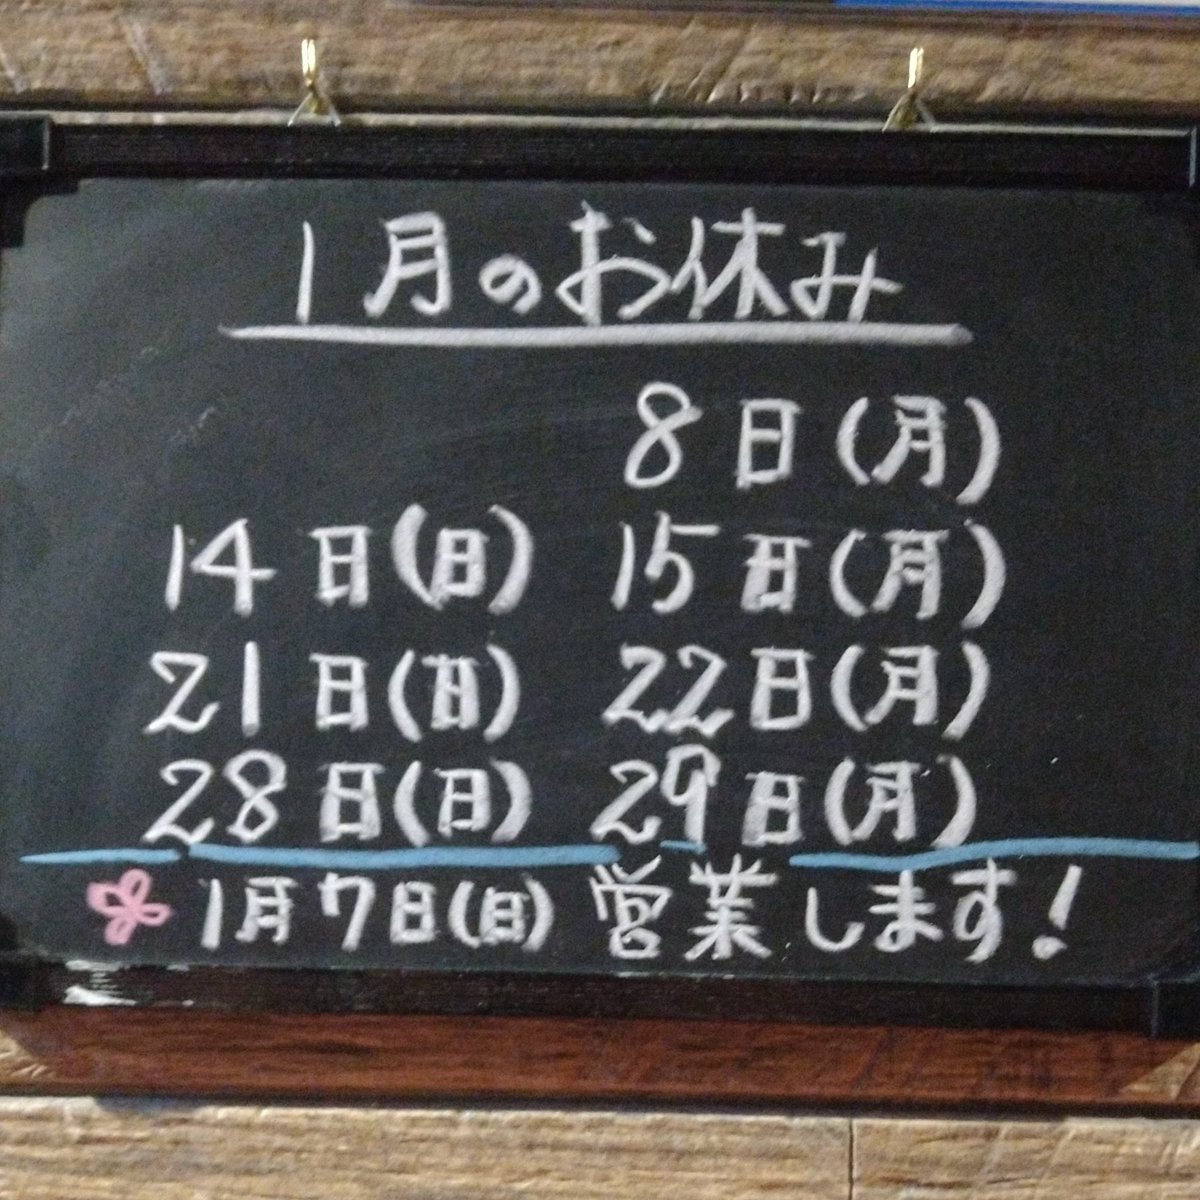 1月のお休み
8日(月)
14日(日) 15日(月)
21日(日) 22日(月)
28日(日) 29日(月)
1月7日(日) 営業します!